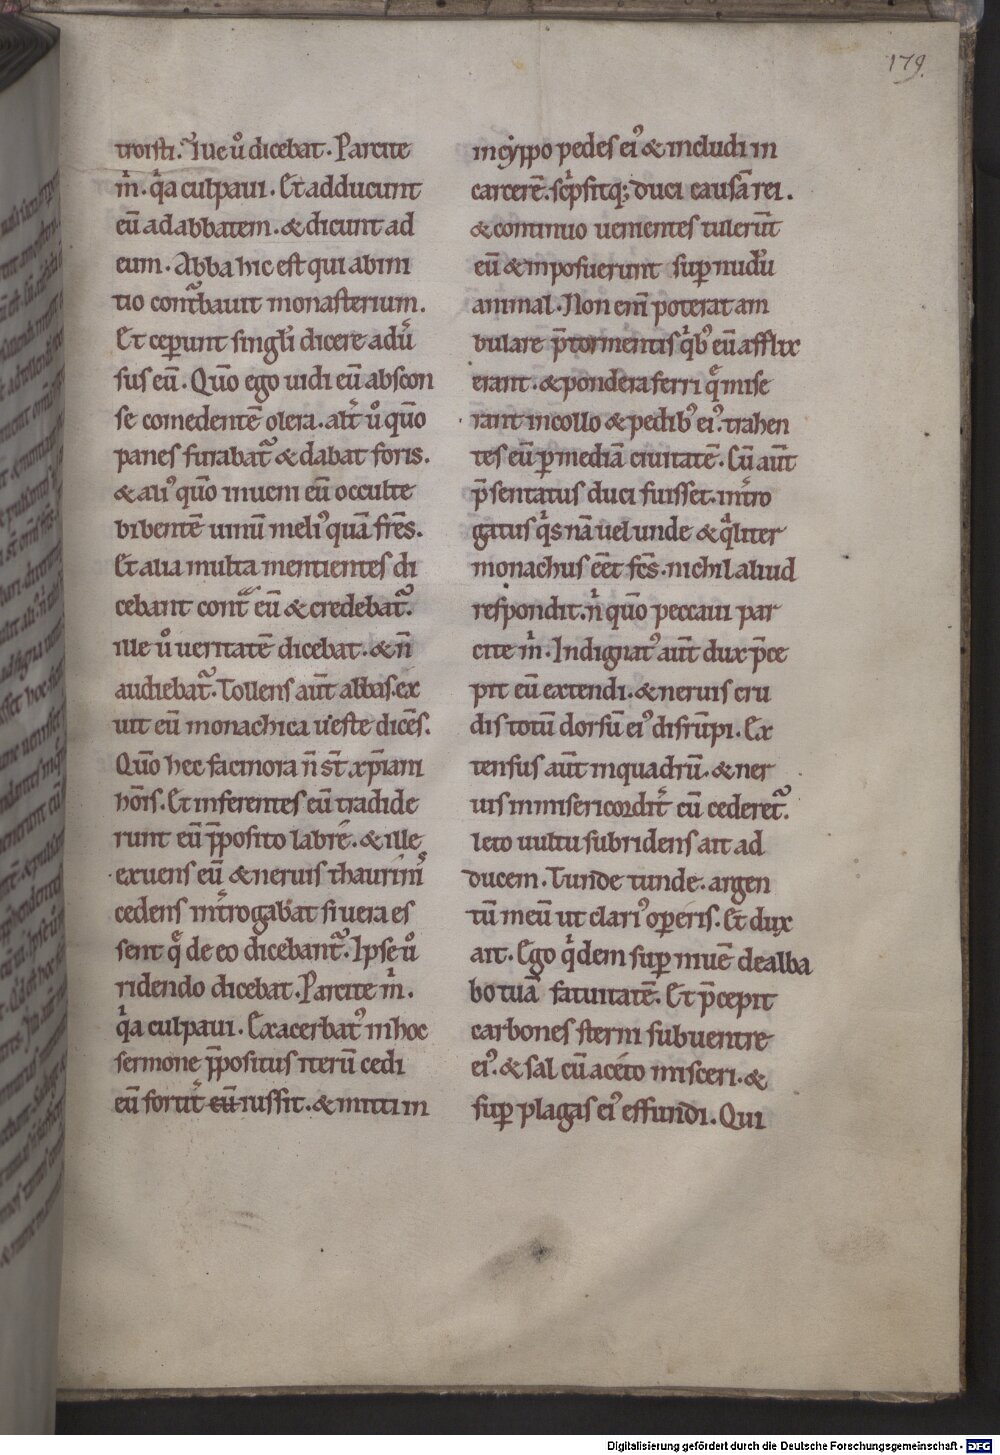 179.
troisti. Ille ů dicebat. Parcite
m̄. qͥa culpaui. Et adducunt
eū ad abbatem. & dicunt ad
eum. Abba hic est qui ab ini
tio cont̃bauit monasterium.
Et ceperunt singłi dicere adů
sus eū. Qūo ego uidi eū abscon
se comedentē olera. alt̃ ů quō
panes furabat᷑ & dabat foris.
& aliꝰ quō inueni eū occulte
bibentē uinū meliꝰ quā fr̄es.
Et alia multa mentientes di
cebant cont̃ eū & credebat᷑.
ille ů ueritatē dicebat. & n̄
audiebat᷑. Tollens aūt abbas. ex
uit eū monachica ueste dicēs.
Quō hec facinora n̄ st̄. xp̄iani
hōis. Et inferentes eū tradide
runt eū p̄posito labrę. & ille
exuens eū & neruis thaurinꝭ
cedens int̃rogabat si uera es
sent q̄ de eo dicebant᷑. Ipse ů
ridendo dicebat. Parcite m̄.
qͥa culpaui. Exacerbatꝰ in hoc
sermone p̄positus iterū cedi
eū fortit̃ eū iussit. & mitti in
in cyppo pedes eiꝰ & includi in
carcerē. sc̄psitq; duci causā rei.
& continuo uenientes tulerūt
eū & inposuerunt sup nudū
animal. Non enī poterat am
bulare p̄ tormentis qͥbꝰ eū afflix
erant. & pondera ferri q̄ mise
rant in collo & pedibꝰ eiꝰ. trahen
tes eū ꝑ mediā ciuitatē. Cū aūt
p̄sentatus duci fuisset. int̃ro
gatus qͥs nā uel unde & qͣliter
monachus eēt fc̄s. nichil aliud
respondit. n̄ quō peccaui par
cite m̄. Indignatꝰ aūt dux p̄ce
pit eū extendi. & neruis cru
dis totū dorsū eiꝰ disrūpi. Ex
tensus aūt in quadrū. & ner
uis inmisericordit̃ cū cederet᷑.
leto uultu subridens ait ad
ducem. Tunde tunde. argen
tū meū ut clariꝰ operis. Et dux
ait. Ego qͥdem sup niuē dealba
bo tuā fatuitatē. Et p̄cepit
carbones sterni sub uentre
eiꝰ. & sal cū aceto misceri. &
sup plagas eiꝰ effundi. Qui
Digitalisierung gefördert durch die Deutsche Forschungsgemeinschaft - DFG